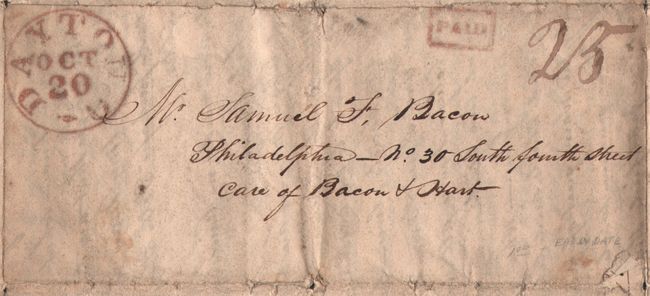 DAYTON O
OCT
20
PAID
25
Mr. Samuel F. Bacon
Philadelphia — No. 30 South fourth street
Care of Bacon & Hart.
EARLY DATE